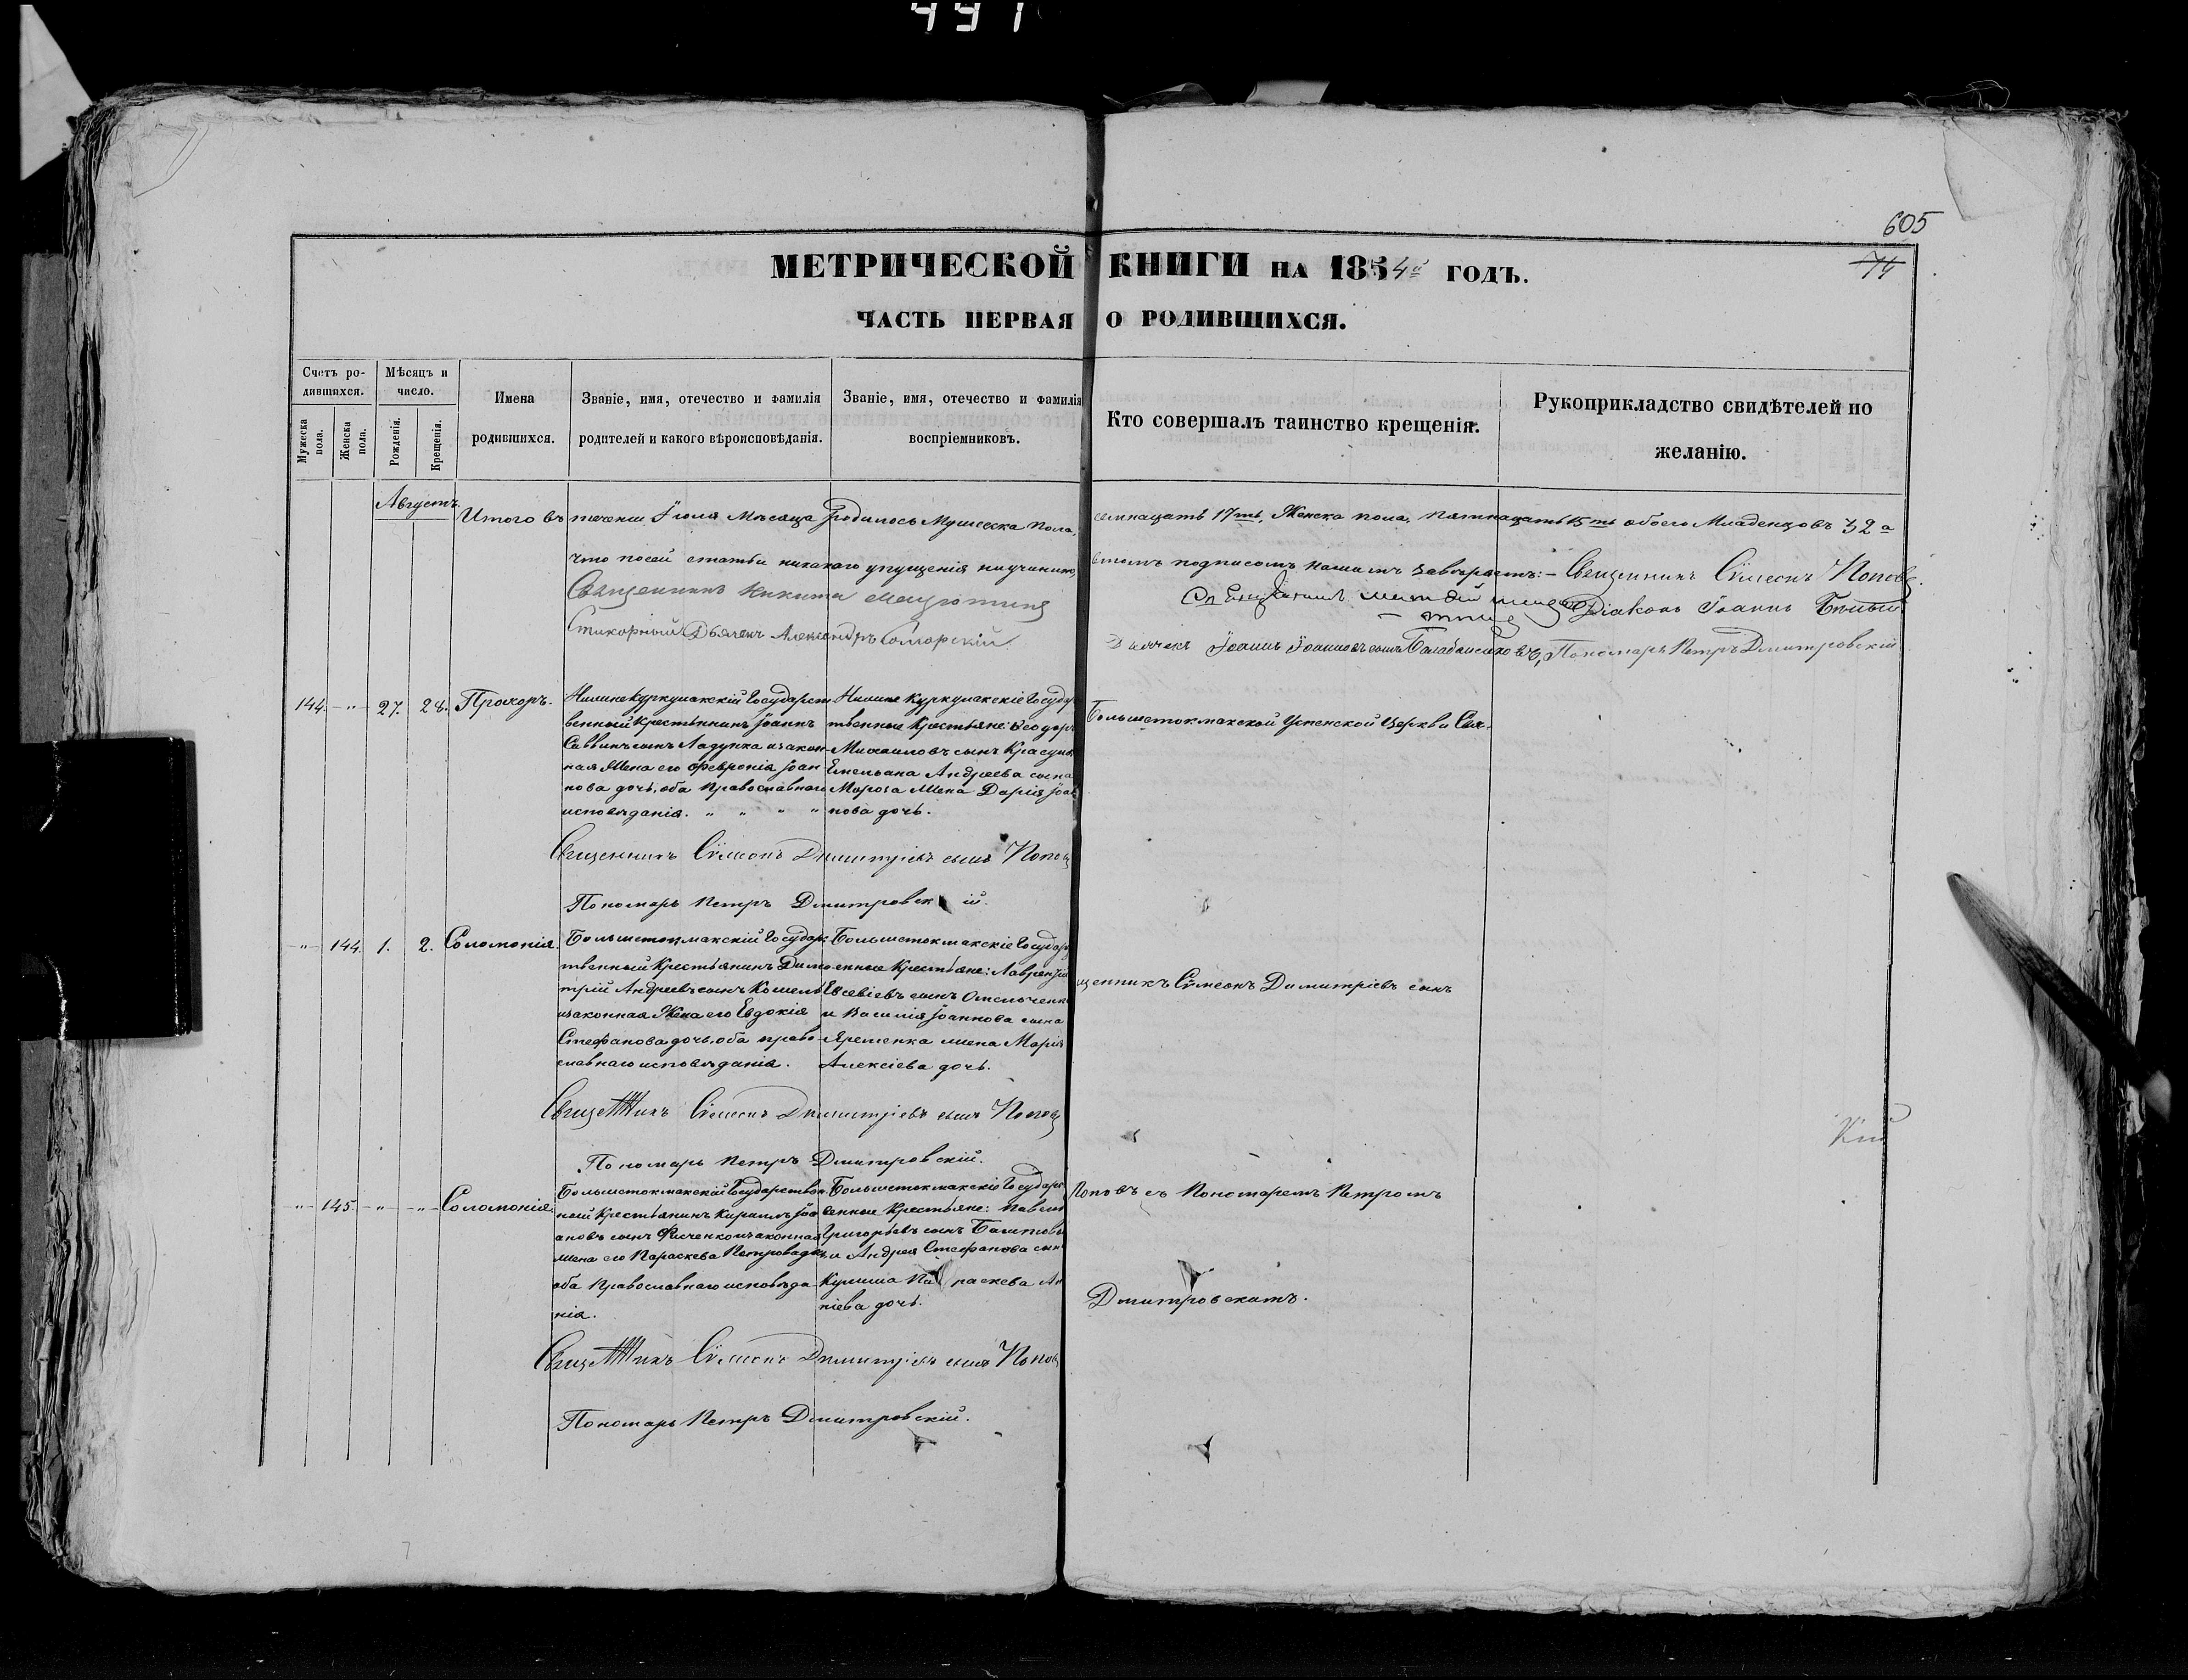 491
605
74
МЕТРИЧЕСКОЙ КНИГИ НА 1854й ГОДЪ.
ЧАСТЬ ПЕРВАЯ О РОДИВШИХСЯ.
Счетъ ро-
дившихся.
Мужеска
пола.
Женска
пола.
Мѣсяцъ и
число.
Рожденія.
Крещенія.
Имена
родившихся.
Званіе, имя, отечество и фамилія
родителей и какого вѣроисповѣданія.
Званіе, имя, отечество и фамилія
воспріемниковъ.
Кто совершалъ таинство крещенія.
Рукоприкладство свидѣтелей по
желанію.
Августъ.
Итого въ теченіи Іюля Мѣсяца родилось Мужеска пола, семнацать 17ть, Женска пола, пятнацать 15ть обоего Младенцовъ 32а
Что посей статьи никакого упущенія неучинено, втомъ подписомъ нашимъ завѣряемъ:- Священникъ Сѵмеонъ Поповъ.
Священникъ Никита
Діаконъ Іоаннъ Бѣлый
Стихорный Дьячекъ Александръ Соморскій.
Дьячекъ Іоаннъ Іоанновъ сынъ Балабаненковъ, Пономарь Петръ Дмитровскій
144. - " - 27. 28. Прохоръ.
Нижнекуркулакскій Государст
венный Крестьянинъ Іоаннъ
Саввинъ сынъ Ладунка изакон-
ная Жена его Февронія Іоан-
нова дочь, оба Православнаго
исповѣданія. " " " "
Нижнекуркулакскіе Государ
твенные Крестьяне: Ѳеодоръ
Михаиловъ сынъ
Емельяна Андреева сына
Мороза Жена Дарія Іоан
нова дочь.
Большетокмакской Успенской Церкви Свя-
Священникъ Сѵмеонъ Димитріевъ сынъ Поповъ
Пономарь Петръ Дмитровскій.
- " - 144. 1. 2. Соломонія.
Большетокмакскій Государс
твенный Крестьянинъ Дими
трій Андреевъ сынъ Кошель
изаконная Жена его Евдокія
Стефанова дочь, оба право-
славнаго исповѣданія.
Большетокмакскіе Государ
енные Крестьяне: Лаврентій
Евсевіевъ сынъ Омельченко
и Василія Іоаннова сына
Яременка жена Марія
Алексіева дочь.
щенникъ Сѵмеонъ Димитріевъ сынъ
Священникъ Сѵмеонъ Димитріевъ сынъ Поповъ
Пономарь Петръ Дмитровскій.
- " - 145. - " - - " - Соломонія.
Большетокмакскій Государствен
ный Крестьянинъ Кириллъ Іоа
ановъ сынъ изаконная
жена его Параскева Петрова дочь
оба Православнаго исповѣда
нія.
Большетокмакскіе Государс
венные Крестьяне: Павелъ
Григорьевъ сынъ
и Андрея Стефанова сын
Кулиша Параскева Ан
ніева дочь.
Поповъ съ Пономаремъ Петромъ
Дмитровскимъ.
Священникъ Сѵмеонъ Димитріевъ сынъ Поповъ
Пономарь Петръ Дмитровскій.